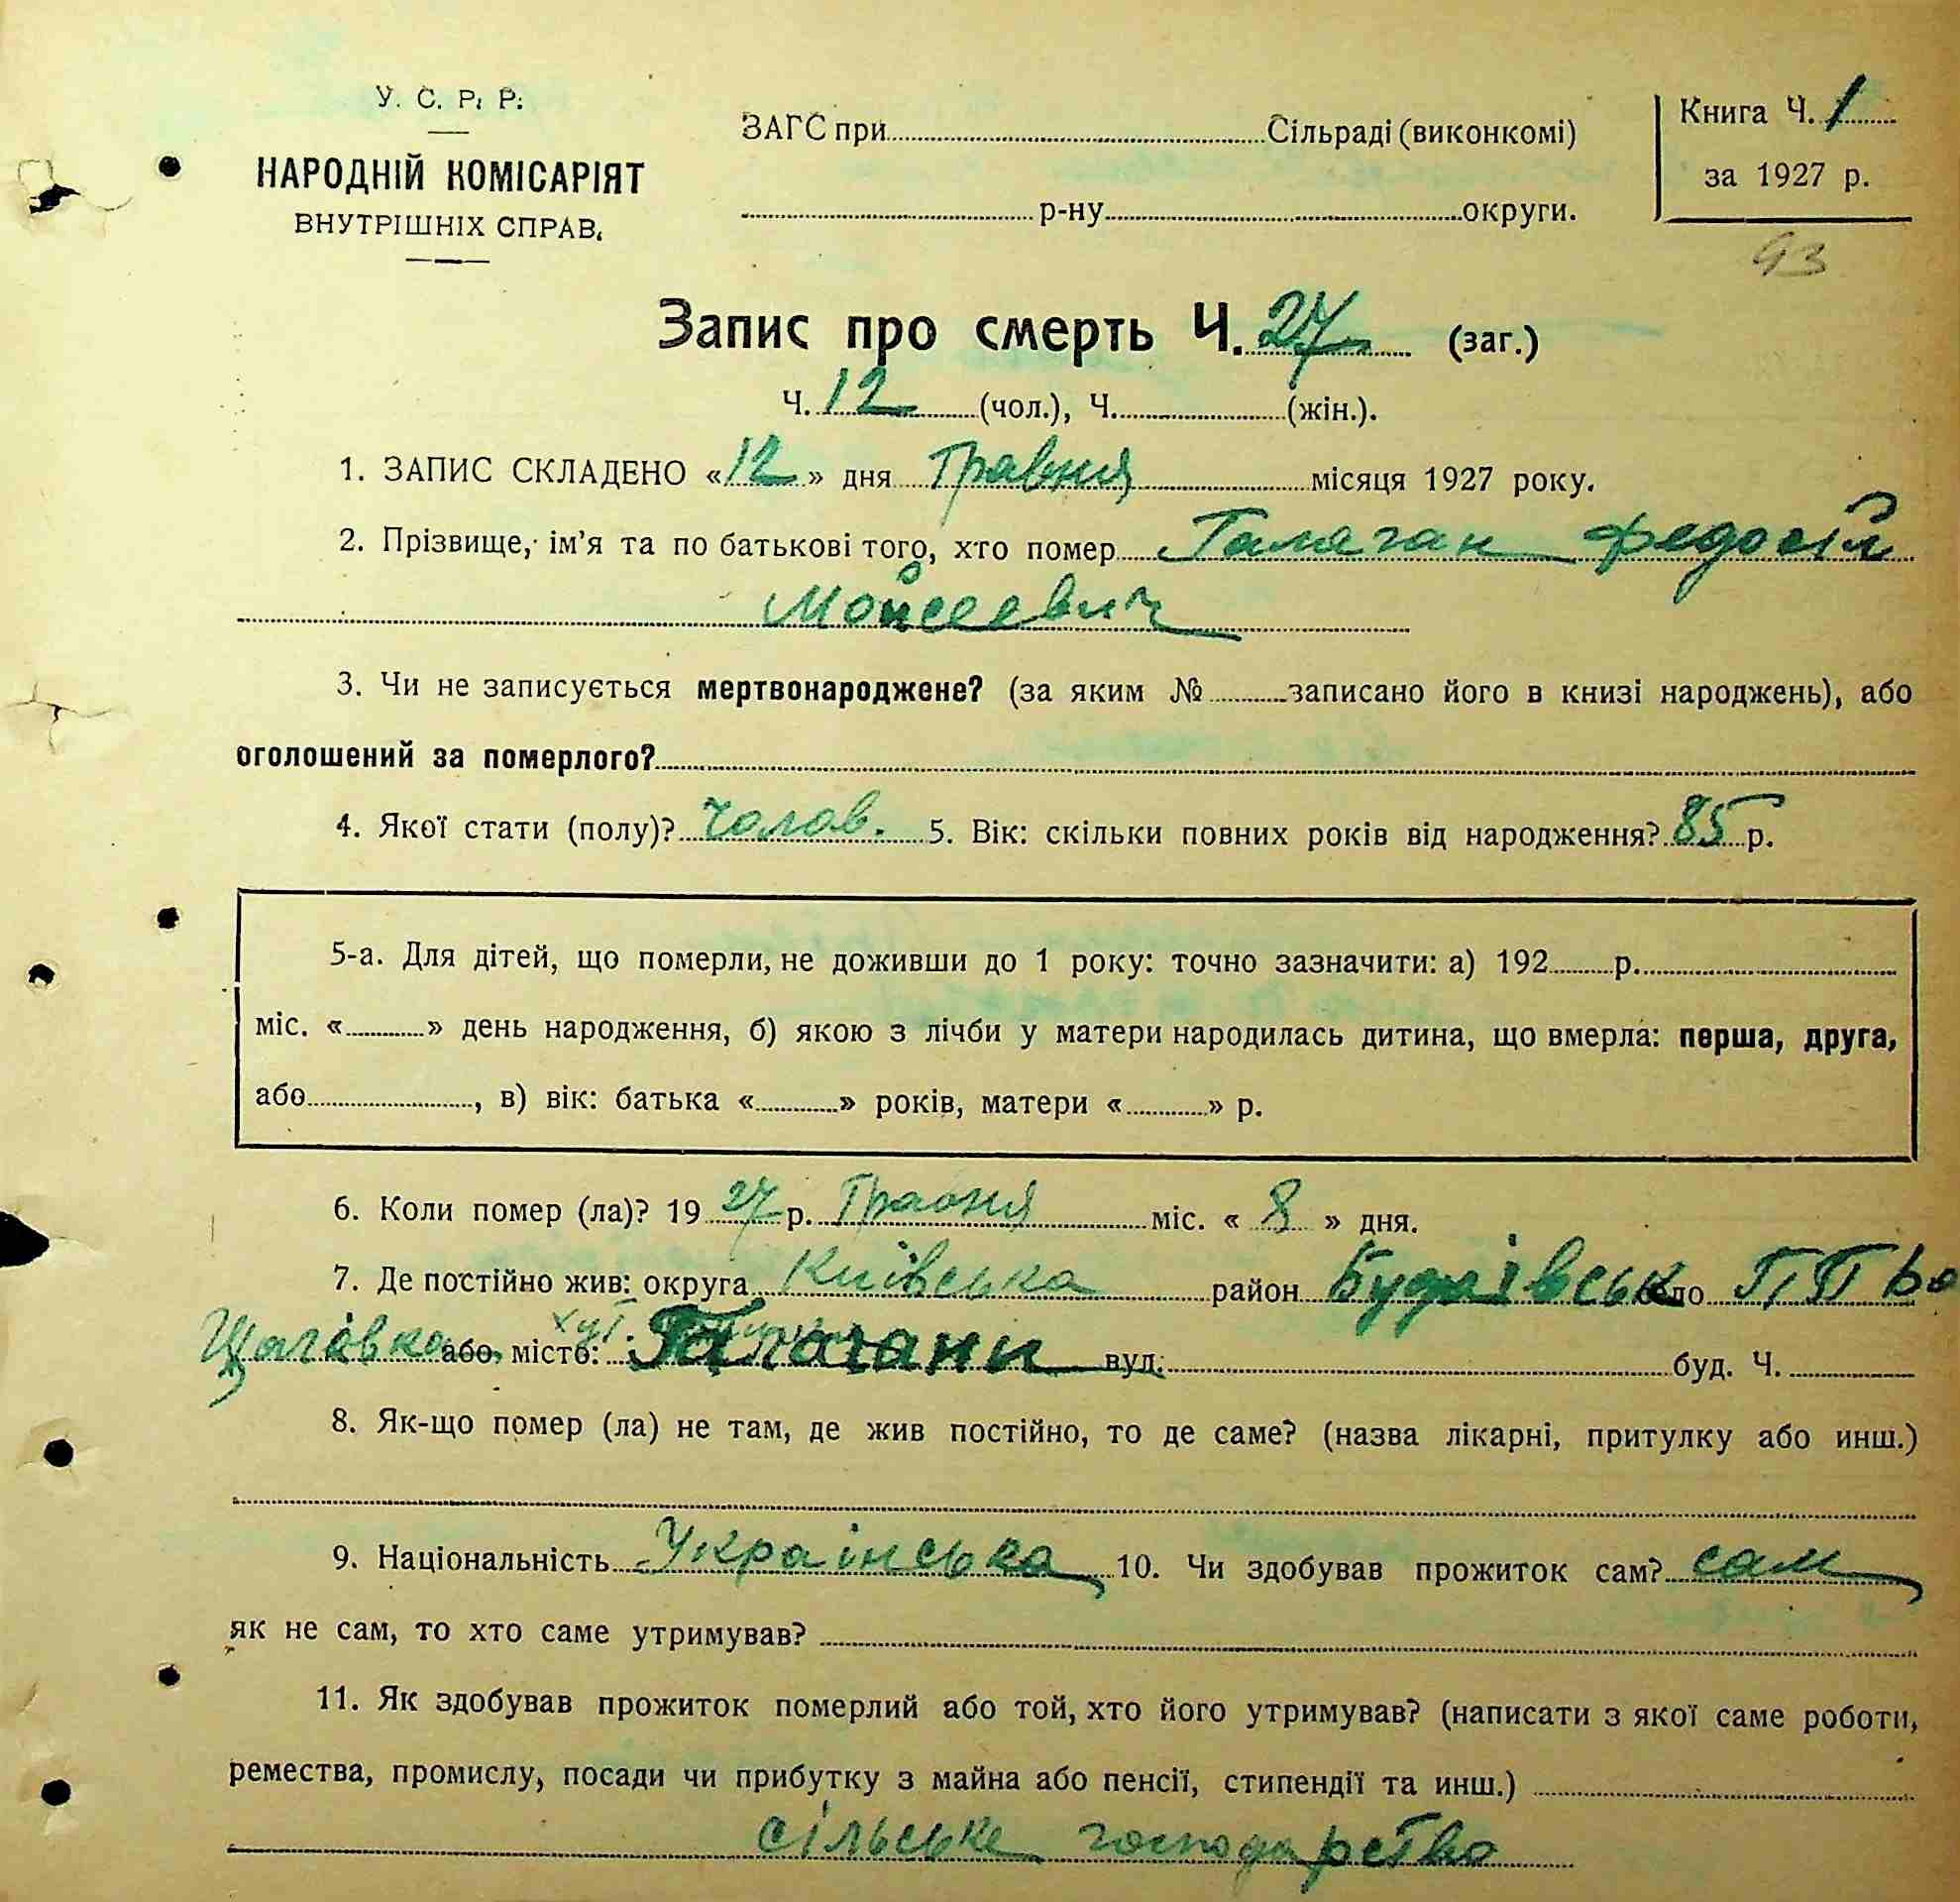 У. С. Р. Р.
НАРОДНІЙ КОМІСАРІЯТ
ВНУТРІШНІХ СПРАВ.
ЗАГС при Сільраді (виконкомі)
р-ну округи.
Книга Ч. 1
за 1927 р.
93
Запис про смерть Ч. 27 (заг.)
Ч. 12 (чол.), Ч. (жін.).
1. ЗАПИС СКЛАДЕНО «12» дня Травня місяця 1927 року.
2. Прізвище, ім'я та по батькові того, хто помер Галаган Федосій
Мойсеевич
3. Чи не записується мертвонароджене? (за яким № записано його в книзі народжень), або
оголошений за померлого?
4. Якої стати (полу)? Чолов. 5. Вік: скільки повних років від народження? 85 р.
5-а. Для дітей, що померли, не доживши до 1 року: точно зазначити: а) 192 р.
міс. « » день народження, б) якою з лічби у матери народилась дитина, що вмерла: перша, друга,
або , в) вік: батька « » років, матери « » р.
6. Коли помер (ла)? 19 27 р. Травня міс. « 8 » дня.
7. Де постійно жив: округа Київська район село
або місто: хут. Галагани вул. буд. Ч.
8. Як-що помер (ла) не там, де жив постійно, то де саме? (назва лікарні, притулку або инш.)
9. Національність Українська 10. Чи здобував прожиток сам? сам
як не сам, то хто саме утримував?
11. Як здобував прожиток померлий або той, хто його утримував? (написати з якої саме роботи,
ремества, промислу, посади чи прибутку з майна або пенсії, стипендії та инш.)
сільське господарство